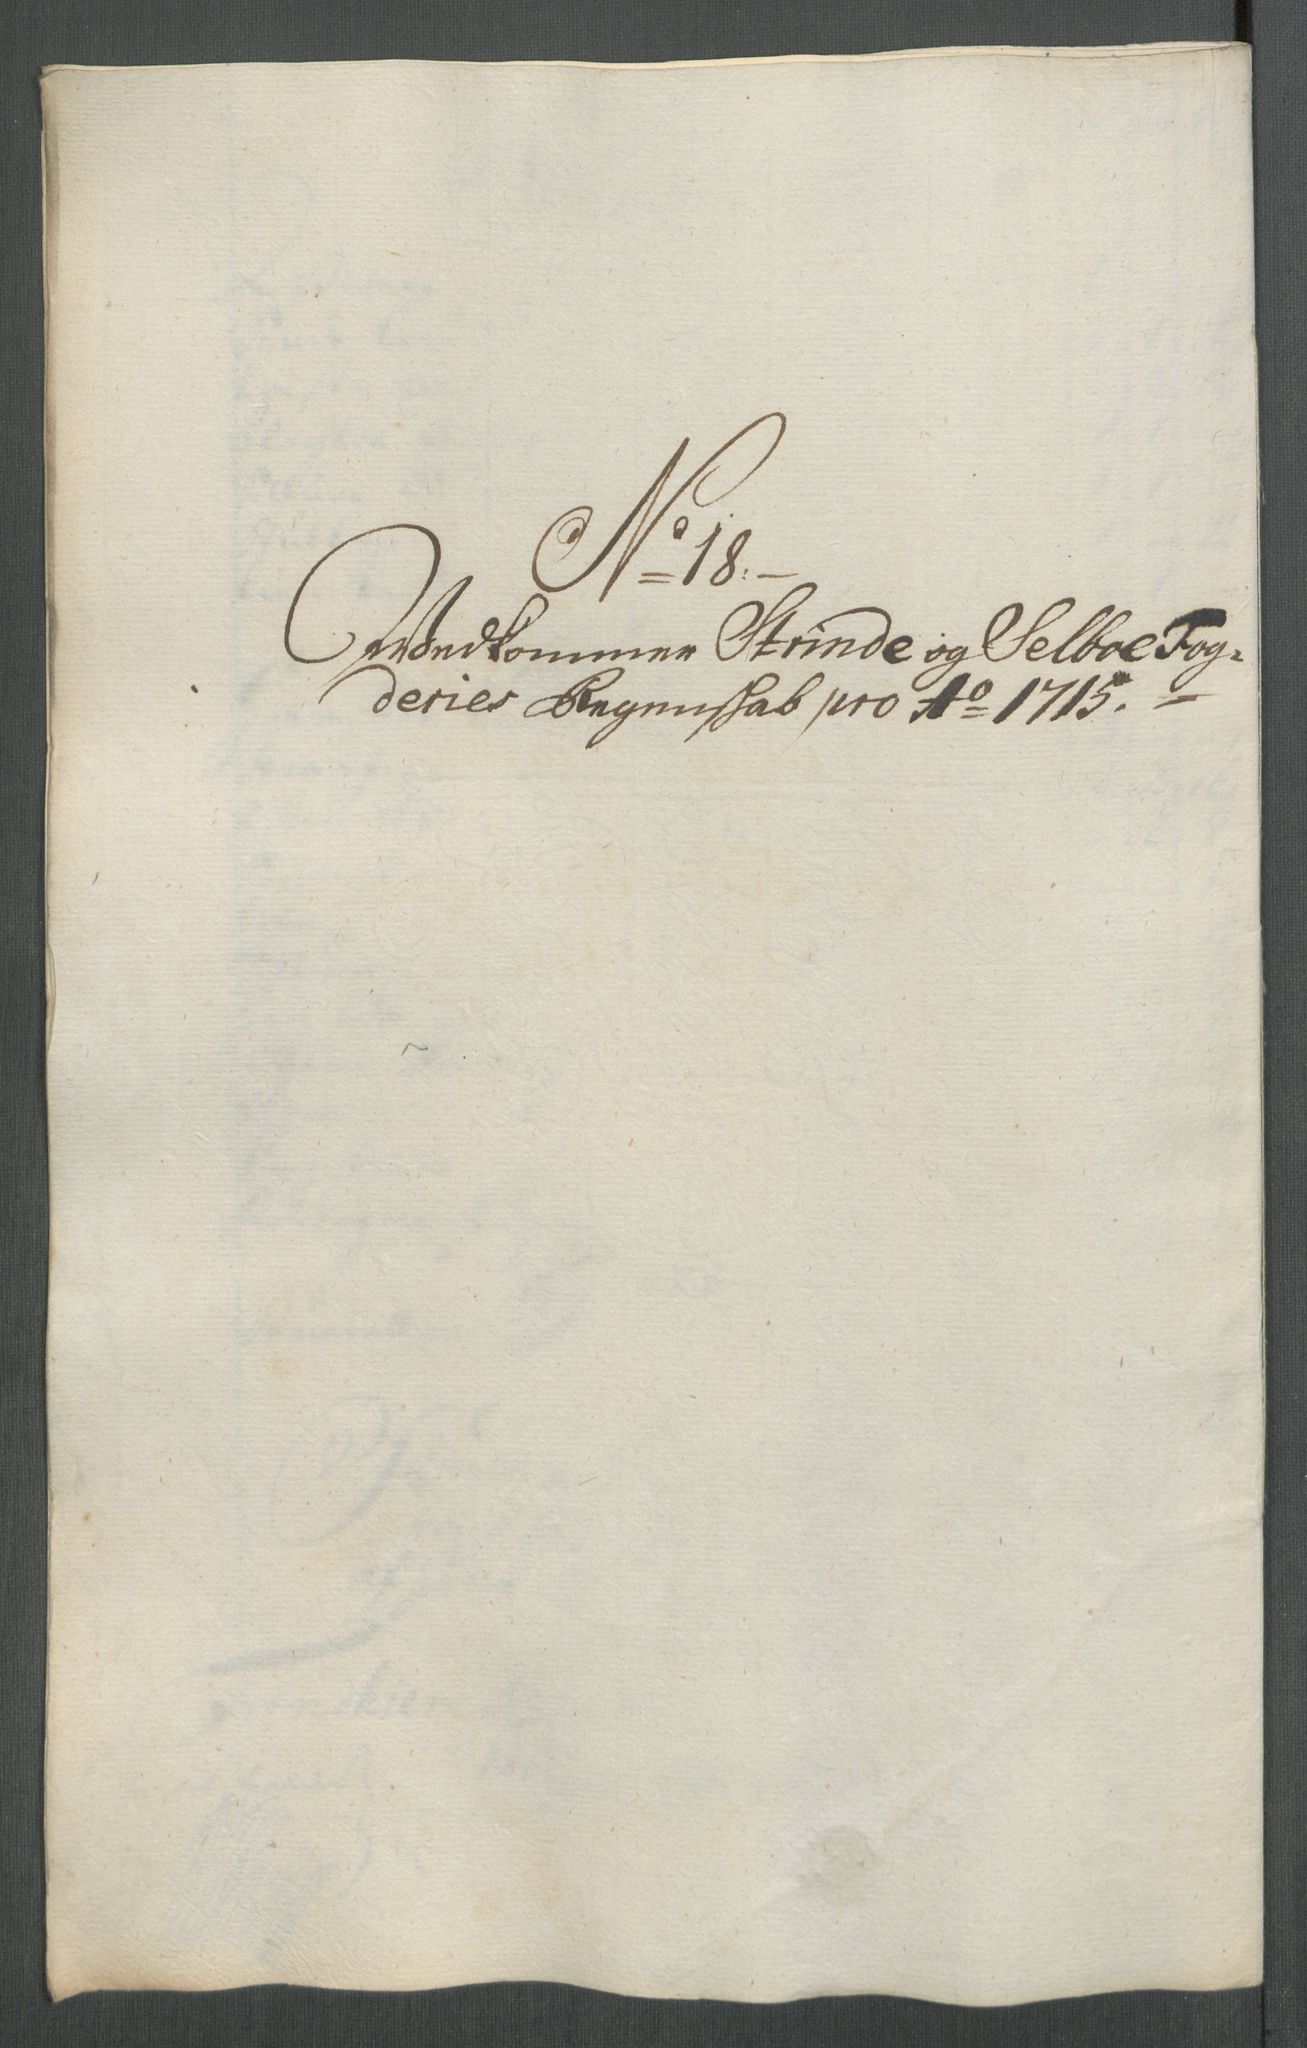 No 18.
Vedkommer Strinde og Selboe Fog-
deries Regenskab pro Ao 1715.